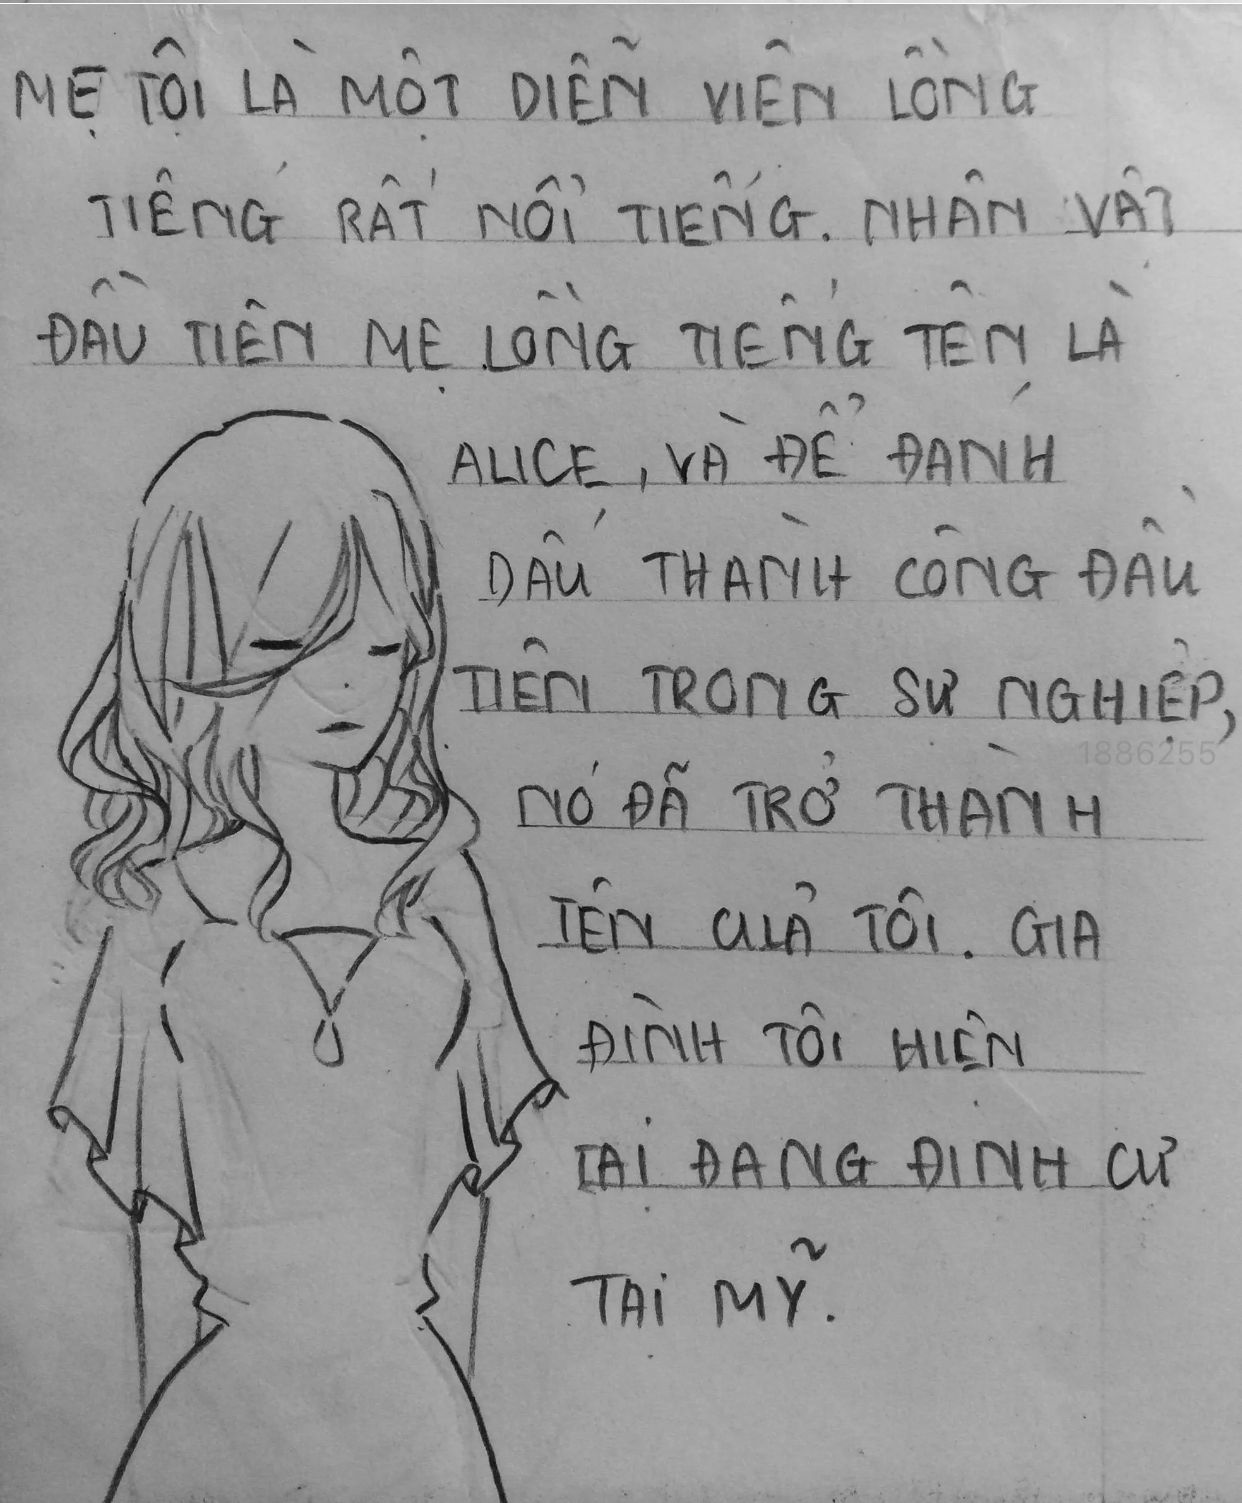 MẸ TÔI LÀ MỘT DIỄN VIÊN LỒNG
TIẾNG RẤT NỔI TIẾNG. NHÂN VẬT
ĐẦU TIÊN MẸ LỒNG TIẾNG TÊN LÀ
ALICE, VÀ ĐỂ ĐÁNH
DẤU THÀNH CÔNG ĐẦU
TIÊN TRONG SỰ NGHIỆP,
1886255
NÓ ĐÃ TRỞ THÀNH
TÊN CỦA TÔI. GIA
ĐÌNH TÔI HIỆN
TẠI ĐANG ĐỊNH CƯ
TẠI MỸ.